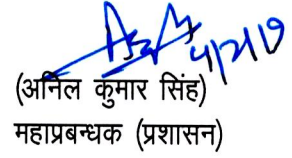 4/2/19
(अनिल कुमार सिंह)
महाप्रबन्धक (प्रशासन)